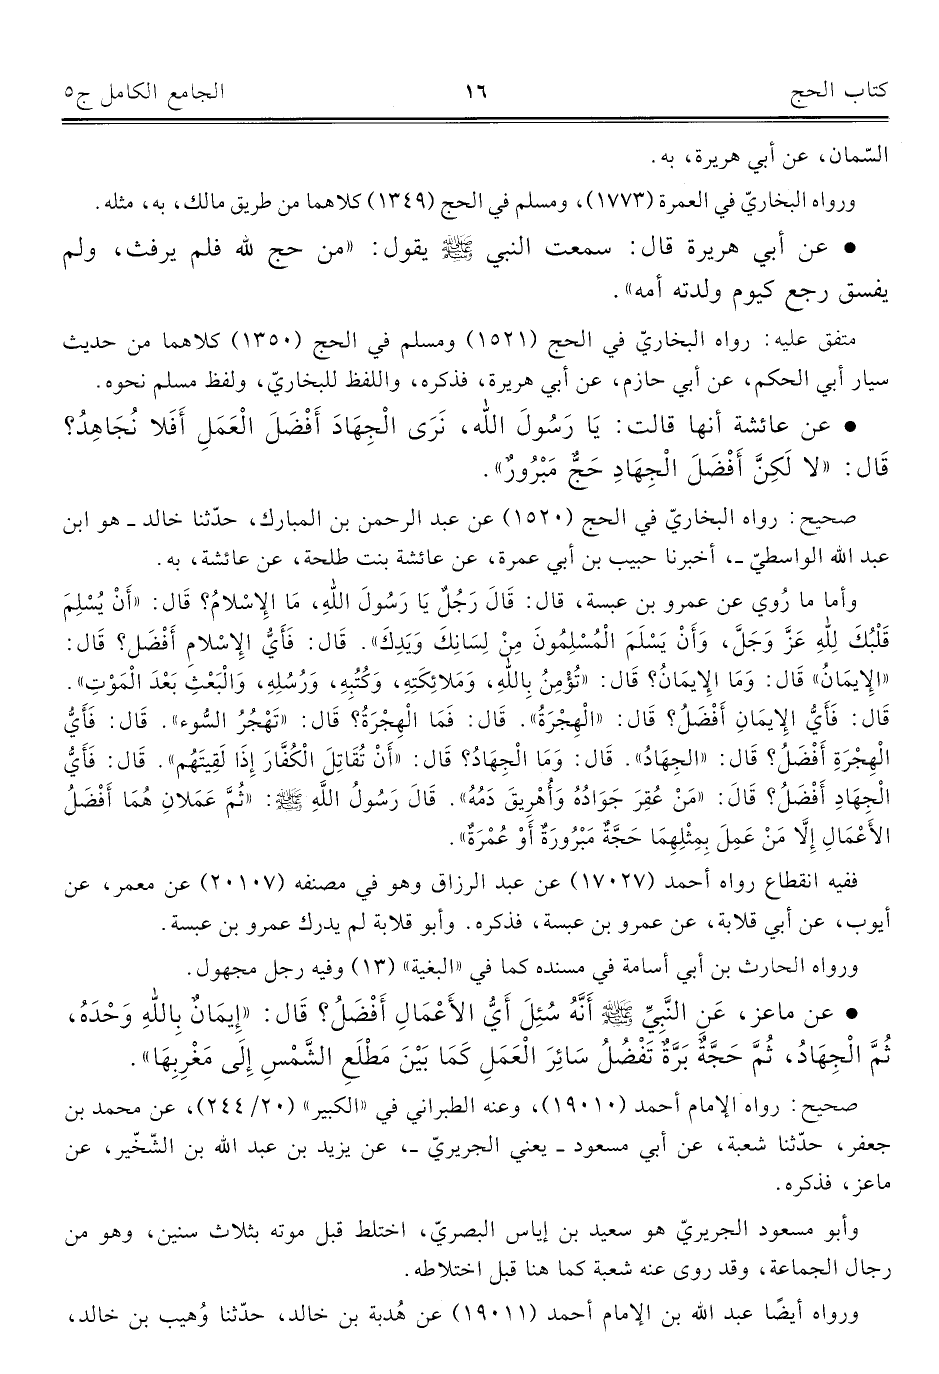 كتاب الحج ١٦ الجامع الكامل ج٥
السّمان، عن أبي هريرة، به.
ورواه البخاريّ في العمرة (١٧٧٣)، ومسلم في الحج (١٣٤٩) كلاهما من طريق مالك، به، مثله.
• عن أبي هريرة قال: سمعت النبي ﷺ يقول: «من حج لله فلم يرفث، ولم
يفسق رجع كيوم ولدته أمه».
متفق عليه: رواه البخاريّ في الحج (١٥٢١) ومسلم في الحج (١٣٥٠) كلاهما من حديث
سيار أبي الحكم، عن أبي حازم، عن أبي هريرة، فذكره، واللفظ للبخاريّ، ولفظ مسلم نحوه.
• عن عائشة أنها قالت: يَا رَسُولَ اللَّه، نَرَى الْجِهَادَ أَفْضَلَ الْعَمَلِ أَفَلا نُجَاهِدُ؟
قَال: «لا لَكِنَّ أَفْضَلَ الْجِهَادِ حَجٌّ مَبْرُورٌ».
صحيح: رواه البخاريّ في الحج (١٥٢٠) عن عبد الرحمن بن المبارك، حدّثنا خالد ـ هو ابن
عبد الله الواسطيّ ـ، أخبرنا حبيب بن أبي عمرة، عن عائشة بنت طلحة، عن عائشة، به.
وأما ما رُوي عن عمرو بن عبسة، قال: قَالَ رَجُلٌ يَا رَسُولَ اللهِ، مَا الإِسْلامُ؟ قَال: «أَنْ يُسْلِمَ
قَلْبُكَ لِلَّهِ عَزَّ وَجَلَّ، وَأَنْ يَسْلَمَ الْمُسْلِمُونَ مِنْ لِسَانِكَ وَيَدِكَ». قَال: فَأَيُّ الإِسْلامِ أَفْضَل؟ قَال:
«الإِيمَانُ» قَال: وَمَا الإِيمَانُ؟ قَال: «تُؤْمِنُ بِاللَّهِ، وَمَلائِكَتِهِ، وَكُتُبِهِ، وَرُسُلِهِ، وَالْبَعْثِ بَعْدَ الْمَوْتِ».
قَال: فَأَيُّ الإِيمَانِ أَفْضَلُ؟ قَال: «الْهِجْرَةُ». قَال: فَمَا الْهِجْرَةُ؟ قَال: «تَهْجُرُ السُّوء». قَال: فَأَيُّ
الْهِجْرَةِ أَفْضَلُ؟ قَال: «الْجِهَادُ». قَال: وَمَا الْجِهَادُ؟ قَال: «أَنْ تُقَاتِلَ الْكُفَّارَ إِذَا لَقِيتَهُم». قَال: فَأَيُّ
الْجِهَادِ أَفْضَلُ؟ قَالَ: «مَنْ عُقِرَ جَوَادُهُ وَأُهْرِيقَ دَمُهُ». قَالَ رَسُولُ اللَّهِ ﷺ: «ثُمَّ عَمَلانِ هُمَا أَفْضَلُ
الأَعْمَالِ إِلَّا مَنْ عَمِلَ بِمِثْلِهِمَا حَجَّةٌ مَبْرُورَةٌ أَوْ عُمْرَةٌ».
ففيه انقطاع رواه أحمد (١٧٠٢٧) عن عبد الرزاق وهو في مصنفه (٢٠١٠٧) عن معمر، عن
أيوب، عن أبي قلابة، عن عمرو بن عبسة، فذكره. وأبو قلابة لم يدرك عمرو بن عبسة.
ورواه الحارث بن أبي أسامة في مسنده كما في «البغية» (١٣) وفيه رجل مجهول.
• عن ماعز، عَنِ النَّبِيِّ ﷺ أَنَّهُ سُئِلَ أَيُّ الأَعْمَالِ أَفْضَلُ؟ قَال: «إِيمَانٌ بِاللَّهِ وَحْدَهُ،
ثُمَّ الْجِهَادُ، ثُمَّ حَجَّةٌ بَرَّةٌ تَفْضُلُ سَائِرَ الْعَمَلِ كَمَا بَيْنَ مَطْلَعِ الشَّمْسِ إِلَى مَغْرِبِهَا».
صحيح: رواه الإمام أحمد (١٩٠١٠)، وعنه الطبراني في «الكبير» (٢٠/٢٤٤)، عن محمد بن
جعفر، حدّثنا شعبة، عن أبي مسعود ـ يعني الجريريّ ـ، عن يزيد بن عبد الله بن الشّخّير، عن
ماعز، فذكره.
وأبو مسعود الجريريّ هو سعيد بن إياس البصريّ، اختلط قبل موته بثلاث سنين، وهو من
رجال الجماعة، وقد روى عنه شعبة كما هنا قبل اختلاطه.
ورواه أيضًا عبد الله بن الإمام أحمد (١٩٠١١) عن هُدبة بن خالد، حدّثنا وُهيب بن خالد،